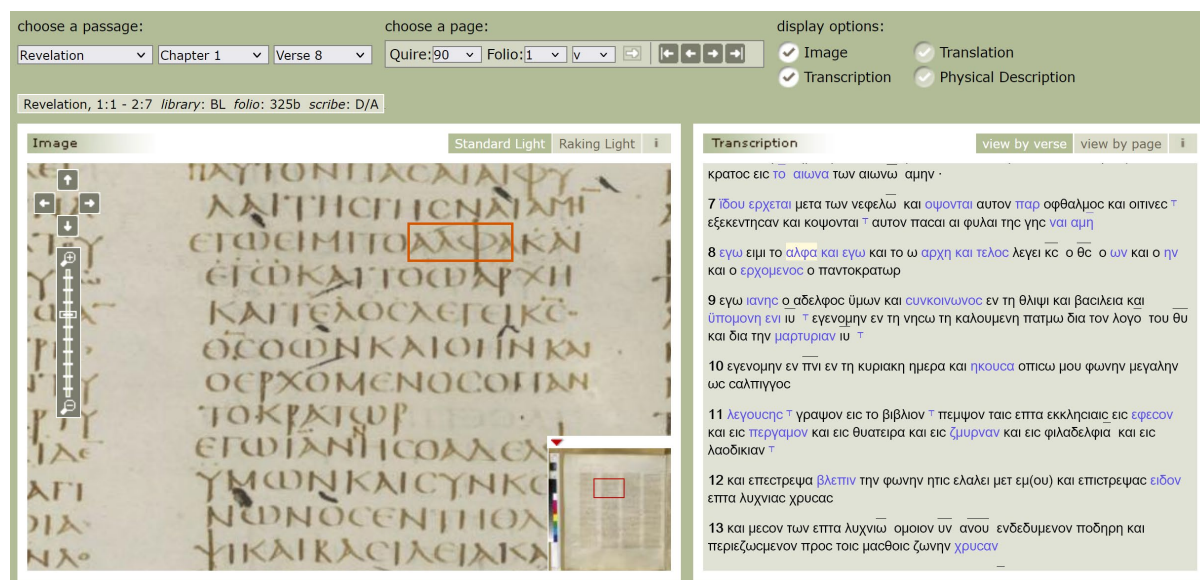 choose a passage:
choose a page:
display options:
Revelation Chapter 1 Verse 8
Quire: 90 Folio: 1 v
Image
Translation
Transcription
Physical Description
Revelation, 1:1 - 2:7 library: BL folio: 325b scribe: D/A
Image
Standard Light Raking Light i
ΠΑΥΤΟΝΠΑϹΑΙΑΙΦΥ
ΛΑΙΤΗϹΓΗϹΝΑΙΑΜΗ
ΕΓΩΕΙΜΙΤΟΑΛΦΑΚΑΙ
ΕΓΩΚΑΙΤΟΩΑΡΧΗ
ΚΑΙΤΕΛΟϹΛΕΓΕΙΚϹ·
ΟΘϹΟΩΝΚΑΙΟΗΝΚΑΙ
ΟΕΡΧΟΜΕΝΟϹΟΠΑΝ
ΤΟΚΡΑΤΩΡ
ΕΓΩΙΑΝΗϹΟΑΔΕΛ
ΥΜΩΝΚΑΙϹΥΝΚΟ
ΝΩΝΟϹΕΝΤΗΘΛ
ΨΙΚΑΙΒΑϹΙΛΕΙΑΚΑ
Transcription
view by verse view by page i
κρατοϲ ειϲ το αιωνα των αιωνω̅ αμην ·
7 ϊδου ερχεται μετα των νεφελω̅ και οψονται αυτον παρ οφθαλμοϲ και οιτινεϲ ⸆
εξεκεντηϲαν και κοψονται ⸆ αυτον παϲαι αι φυλαι τηϲ γηϲ ναι αμη̅
8 εγω ειμι το αλφα και εγω και το ω αρχη και τελοϲ λεγει κ̅ϲ̅ ο θ̅ϲ̅ ο ων και ο ην
και ο ερχομενοϲ ο παντοκρατωρ
9 εγω ιανηϲ ο αδελφοϲ ϋμων και ϲυνκοινωνοϲ εν τη θλιψι και βαϲιλεια και
ϋπομονη ενι ι̅υ̅ ⸆ εγενομην εν τη νηϲω τη καλουμενη πατμω δια τον λογο̅ του θ̅υ̅
και δια την μαρτυριαν ι̅υ̅ ⸆
10 εγενομην εν π̅ν̅ι̅ εν τη κυριακη ημερα και ηκουϲα οπιϲω μου φωνην μεγαλην
ωϲ ϲαλπιγγοϲ
11 λεγουϲηϲ ⸆ γραψον ειϲ το βιβλιον ⸆ πεμψον ταιϲ επτα εκκληϲιαιϲ ειϲ εφεϲον
και ειϲ περγαμον και ειϲ θυατειρα και ειϲ ζμυρναν και ειϲ φιλαδελφια̅ και ειϲ
λαοδικιαν ⸆
12 και επεϲτρεψα βλεπιν την φωνην ητιϲ ελαλει μετ εμ(ου) και επιϲτρεψαϲ ειδον
επτα λυχνιαϲ χρυϲαϲ
13 και μεϲον των επτα λυχνιω̅ ομοιον υ̅ν̅ α̅ν̅ο̅υ̅ ενδεδυμενον ποδηρη και
περιεζωϲμενον προϲ τοιϲ μαϲθοιϲ ζωνην χρυϲαν